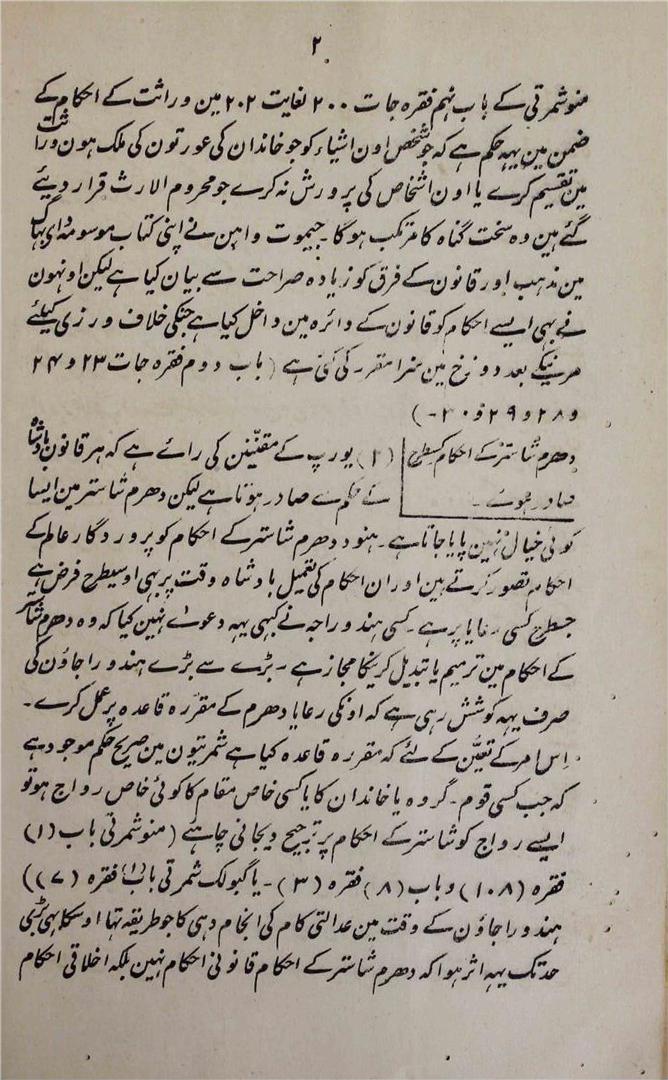 ۲
منو شمرتی کے باب نہم فقرہ جات ۲۰۰ لغایت ۲۰۲ مین وراثت کے احکام کے
ضمن مین یہہ حکم ہے کہ جو شخص اون اشیاء کو جو خاندان کی عورتون کی ملک ہون وراثت
مین تقسیم کرے یا اون اشخاص کی پرورش نہ کرے جو محروم الارث قرار دیئے
گئے ہین وہ سخت گناہ کا مرتکب ہوگا۔ جیموت واہن نے اپنی کتاب موسومہ دای بہاگ
مین مذہب اور قانون کے فرق کو زیادہ صراحت سے بیان کیا ہے لیکن اونہون
نے بہی ایسے احکام کو قانون کے دائرہ مین داخل کیا ہے جنکی خلاف ورزی کیلئے
مرنیکے بعد دوزخ مین سزا مقرر کی گئی ہے (باب دوم فقرہ جات ۲۳ و ۲۴
و ۲۸ و ۲۹ و ۳۰ -)
دھرم شاستر کے احکام کسطرح
صادر ہوے۔
(۲) یورپ کے مقنّنین کی رائے ہے کہ ہر قانون بادشاہ
کے حکم سے صادر ہوتا ہے لیکن دھرم شاستر مین ایسا
کوئی خیال نہین پایا جاتا ہے۔ ہنود دھرم شاستر کے احکام کو پروردگار عالم کے
احکام تصور کرتے ہین اور ان احکام کی تعمیل بادشاہ وقت پر بہی اوسیطرح فرض ہے
جسطرح کسی رعایا پر ہے۔ کسی ہندو راجہ نے کبہی یہہ دعوے نہین کیا کہ وہ دھرم شاستر
کے احکام مین ترمیم یا تبدیل کرنیکا مجاز ہے۔ بڑے سے بڑے ہندو راجاؤن کی
صرف یہہ کوشش رہی ہے کہ اونکی رعایا دھرم کے مقررہ قاعدہ پر عمل کرے۔
اِس امر کے تعیّن کے لئے کہ مقررہ قاعدہ کیا ہے شمرتیون مین صریح حکم موجود ہے
کہ جب کسی قوم۔ گروہ یا خاندان کا یا کسی خاص مقام کا کوئی خاص رواج ہو تو
ایسے رواج کو شاستر کے احکام پر ترجیح دیجانی چاہئے (منو شمرتی باب (۱)
فقرہ (۱۰۸) و باب (۸) فقرہ (۳)۔ یاگبولک شمرتی باب (۱) فقرہ (۷))
ہندو راجاؤن کے وقت مین عدالتی کام کی انجام دہی کا جو طریقہ تہا اوسکا بہی بڑی
حد تک یہہ اثر ہوا کہ دھرم شاستر کے احکام قانونی احکام نہین بلکہ اخلاقی احکام